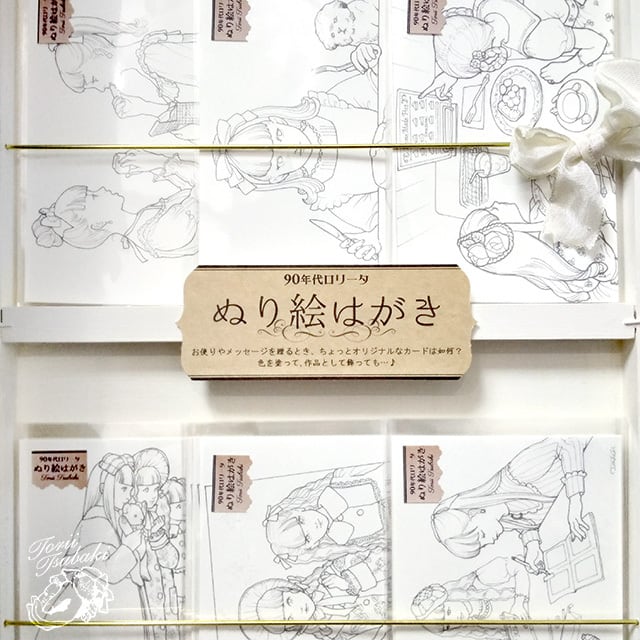 90年代ロリータ
ぬり絵はがき
90年代ロリータ
ぬり絵はがき
90年代ロリータ
ぬり絵はがき
90年代ロリータ
ぬり絵はがき
お便りやメッセージを贈るとき、ちょっとオリジナルなカードは如何?
色を塗って、作品として飾っても…♪
90年代ロリータ
ぬり絵はがき
Torii Tsubaki
90年代ロリータ
ぬり絵はがき
Torii Tsubaki
90年代ロリータ
ぬり絵はがき
Torii Tsubaki
Torii
Tsubaki